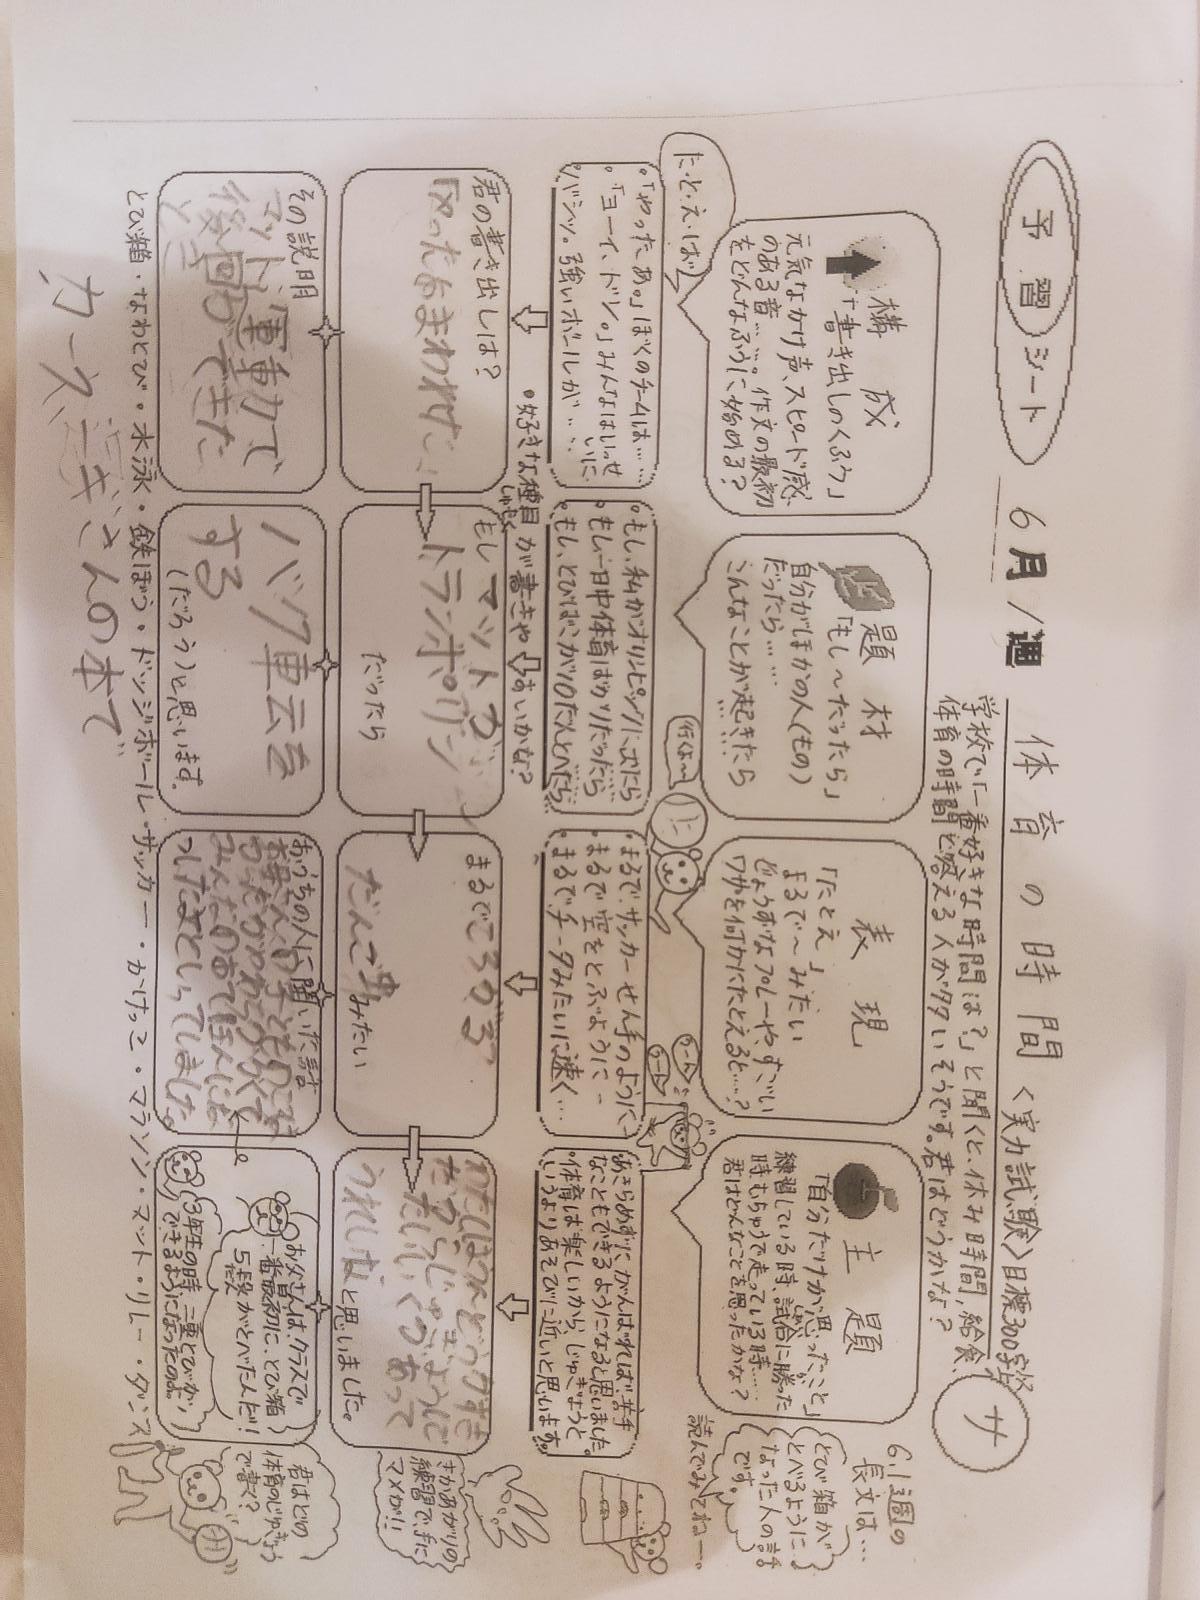 予習シート
6月1週
体育の時間
<実力試験>目標300字
サ
学校で「一番好きな時間は?」と聞くと、休み時間、給食、
体育の時間と答える人が多いそうです。君はどうかな?
6.1週の
長文は…
とび箱が
とべるように
なった人の話
です。
読んでみてねー。
構成
「書き出しのくふう」
元気なかけ声、スピード感
のある音…。作文の最初
をどんなふうに始める?
たとえば
・「やったあ。」ぼくのチームは……
・「ヨーイ、ドン。」みんなはいっせいに
・バシッ。強いボールが……
君の書き出しは?
「やったあまわれた」
その説明
マット運動で
後回りできた
題材
「もし〜だったら」
自分がほかの人(もの)
だったら……
こんなことが起きたら……
・もし、私がオリンピックに出たら
・もし一日中体育ばかりだったら
・もし、とびばこが10だんとべたら
・好きな種目が書きやすいかな?
もしマットが
トランポリン
だったら
バク転を
する
(だろう)と思います。
表現
「たとえ」
まるで〜みたい
じょうずなプレーや、すごい
ワザを何かにたとえると…?
行くよ〜
・まるで、サッカーせん手のように
・まるで空をとぶように
・まるでチータみたいに速く…
まるでころがる
だんご虫みたい
おうちの人に聞いた話
主題
「自分だけが思ったこと」
練習している時、試合に勝った
時、もちゅうで走っている時……
君はどんなことを思ったかな?
あきらめずにがんばれば苦手
なこともできるようになると思いました。
・体育は楽しいから、じゅぎょうと
いうよりあそびに近いと思います。
うれしいなと思いました。
さかあがりの
練習で、手に
マメが!!
お父さんは、クラスで
一番最初に、とび箱
5段がとべたんだ!
3年生の時 二重とびが
できるようになったのよ。
君はどの
体育のじゅぎょう
で書く?
とび箱・なわとび・水泳・鉄ぼう・ドッジボール・サッカー・かけっこ・マラソン・マット・リレー・ダンス